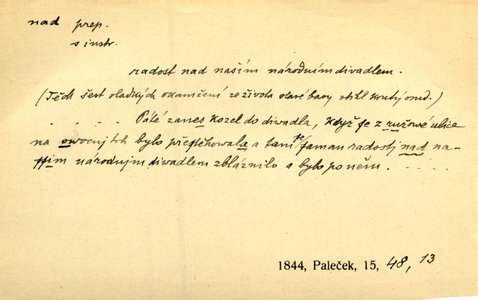 nad prep.
s instr.
radost nad naším národním divadlem.
(Těch šest sladkých okamžení ze života staré baby utekl krutý osud.)
. . . . . Páté zanes kozel do diwadla, když se z ružowé ulice
na owocný trh bylo přestěhowala a tam se saman radostj nad na-
ssim národnjm diwadlem zbláznilo a bylo po něm. . . . .
1844, Paleček, 15, 48, 13